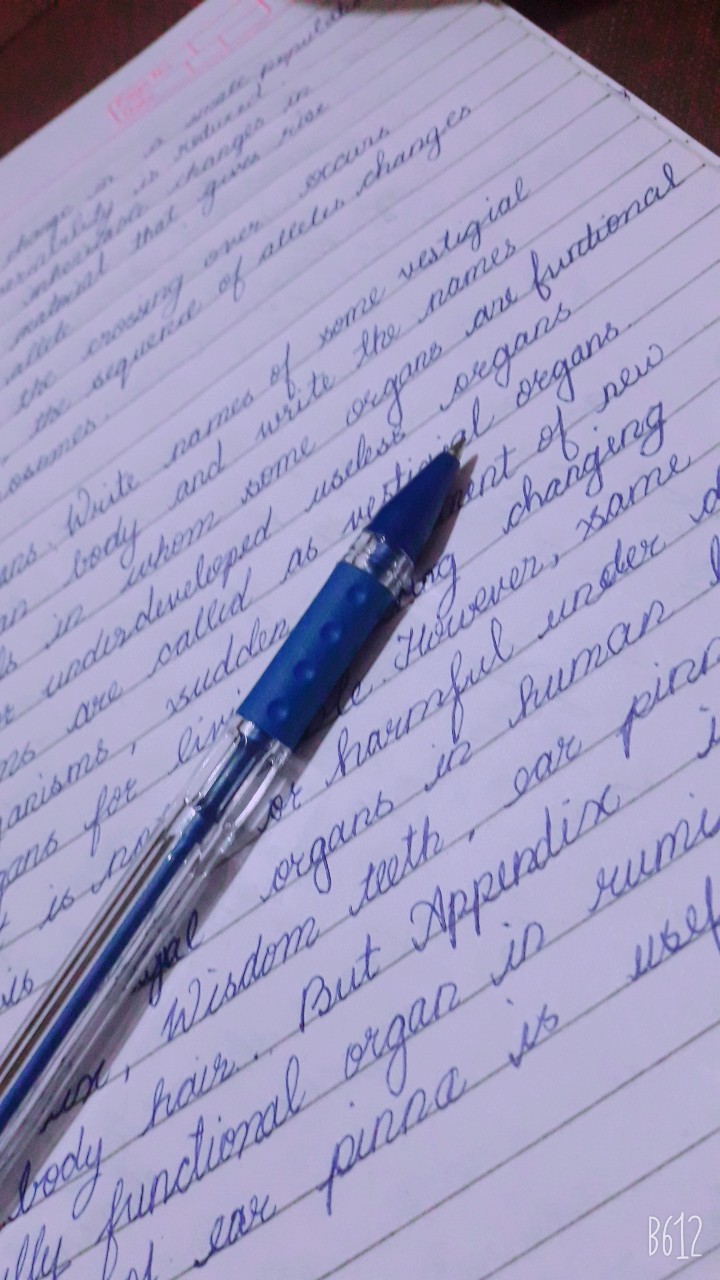 change in a small population
variability is reduced.
inheritable changes in
material that gives rise
allele
the crossing over occurs
the sequence of alleles changes
osomes.
ans. Write names of some vestigial
an body and write the names
in whom some organs are funtional
or underdeveloped useless organs
ms are called as vestigial organs.
anisms, sudden ment of new
gans for livi ng changing
t is not le. However, same
is or harmful under d
gal organs in human b
ix, Wisdom teeth, ear pinn
body hair. But Appendix i
lly functional organ in rumi
of ear pinna is usef
B612